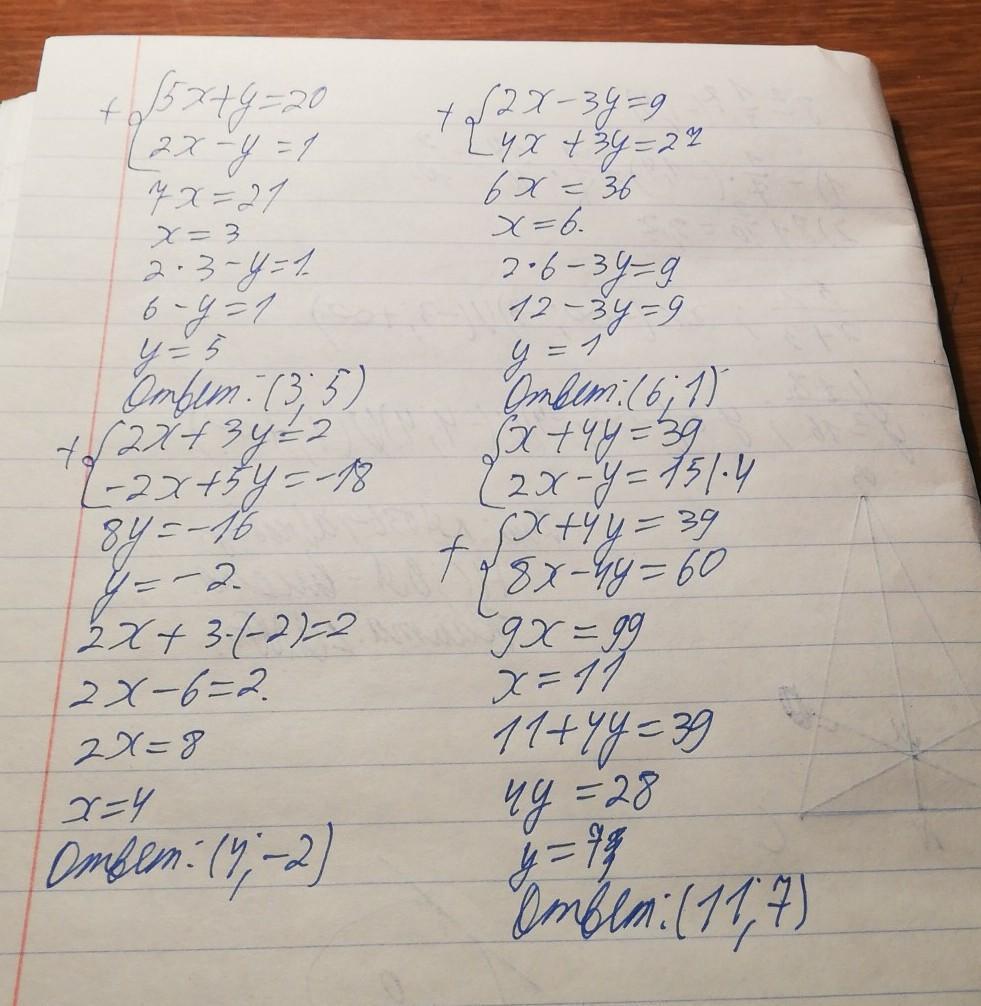 + {5x+y=20
2x-y=1
7x=21
x=3
2·3-y=1.
6-y=1
y=5
Ответ: (3; 5)
+ {2x+3y=2
-2x+5y=-18
8y=-16
y=-2.
2x+3·(-2)=2
2x-6=2.
2x=8
x=4
Ответ: (4; -2)
+ {2x-3y=9
4x+3y=27
6x=36
x=6.
2·6-3y=9
12-3y=9
y=1
Ответ: (6; 1)
{x+4y=39
2x-y=15|·4
+ {x+4y=39
8x-4y=60
9x=99
x=11
11+4y=39
4y=28
y=7
Ответ: (11; 7)